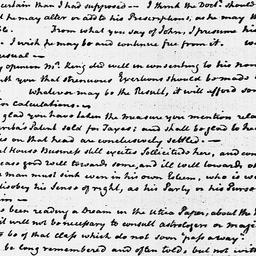 certain than I had supposed — I think the Doct. should
he may alter or add to his Prescriptions, as he may th
le. From what you say of John, I presume his
. I wish he may be and continue free from it.
usual —
y opinion Mr. King did well in consenting to his nom
th you that strenuous Exertions should be made
Whatever may be the Result, it will afford som
or calculations. —
glad you have taken the measure you mention rela
Patent sold for Taxes; and shall be glad to hea
s on that head are conclusively settled. —
al House Business still excites Solicitude here, and con
eas good will towards some, and ill will towards oth
e man must sink even in his own Esteem, who is w
disobey his Sense of right, as his Party or his Perso
in —
s been reading a dream in the Utica Paper, about the
it will not be necessary to consult astrologers or magi
to be of that class which do not soon "pass away."
be long remembered and often told; but not with